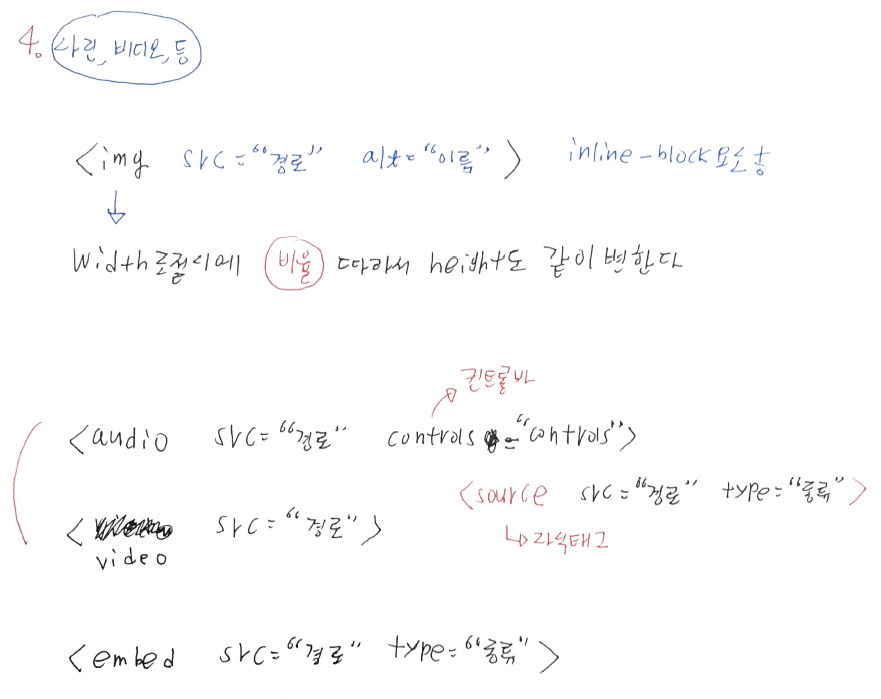 4. 사진, 비디오, 등
<img src="경로" alt="이름"> inline-block요소
Width 비율 따라서 height도 같이 변한다
컨트롤바
<audio src="경로" controls="controls">
<source src="경로" type="종류">
<video src="경로">
자식태그
<embed src="경로" type="종류">